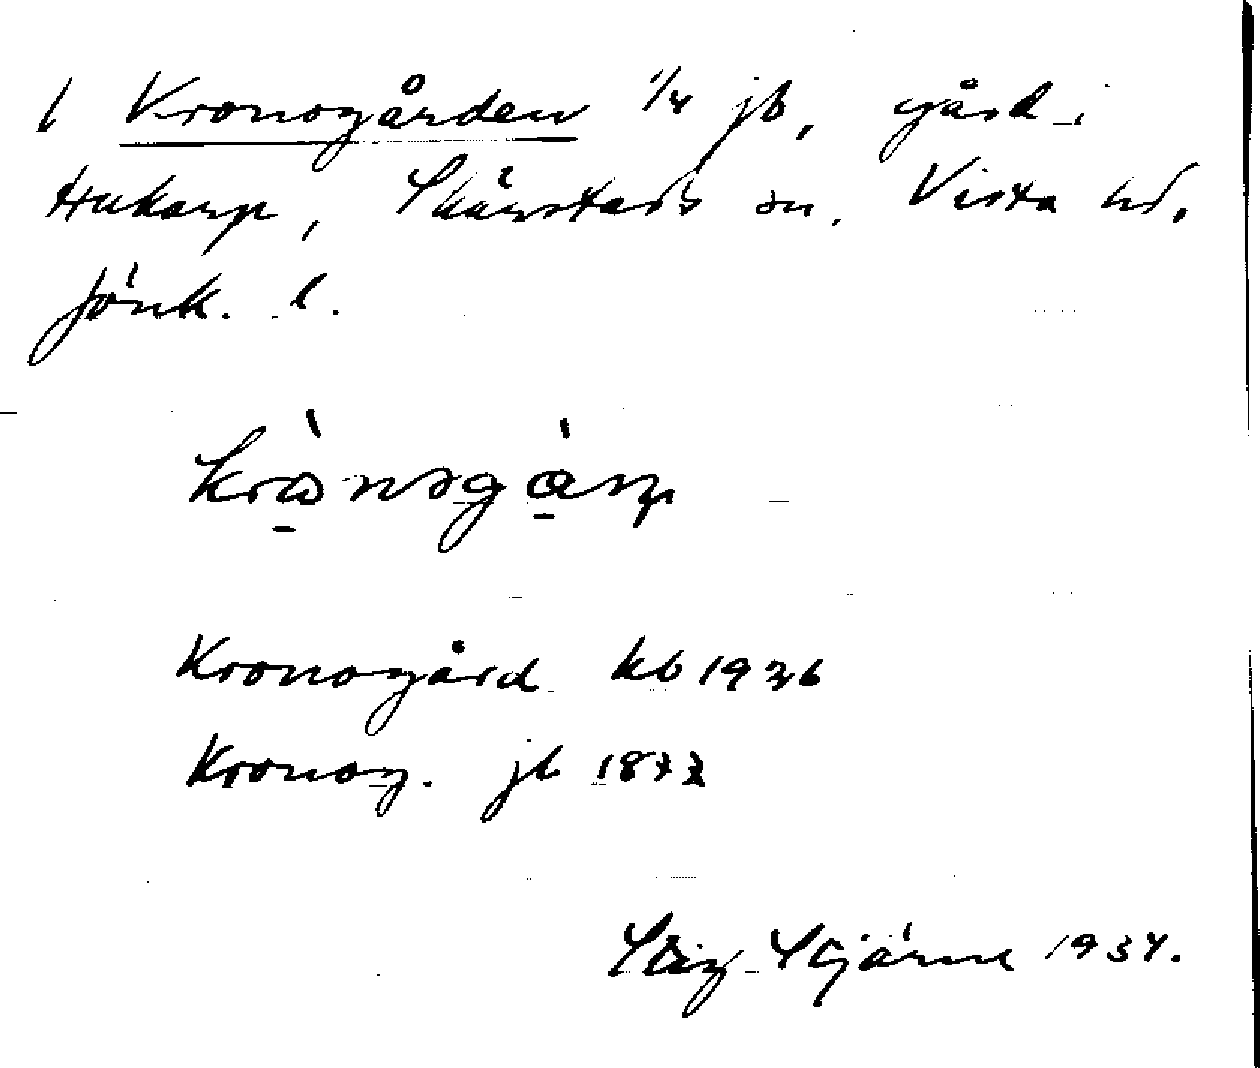 l Kronogården 1/4 jb, gård i
Hukarp, Skärstads sn. Vista hd.
Jönk. l.
Kronogård kb 1936
Kronog. jb 1877
Stig Stjärne 1937.